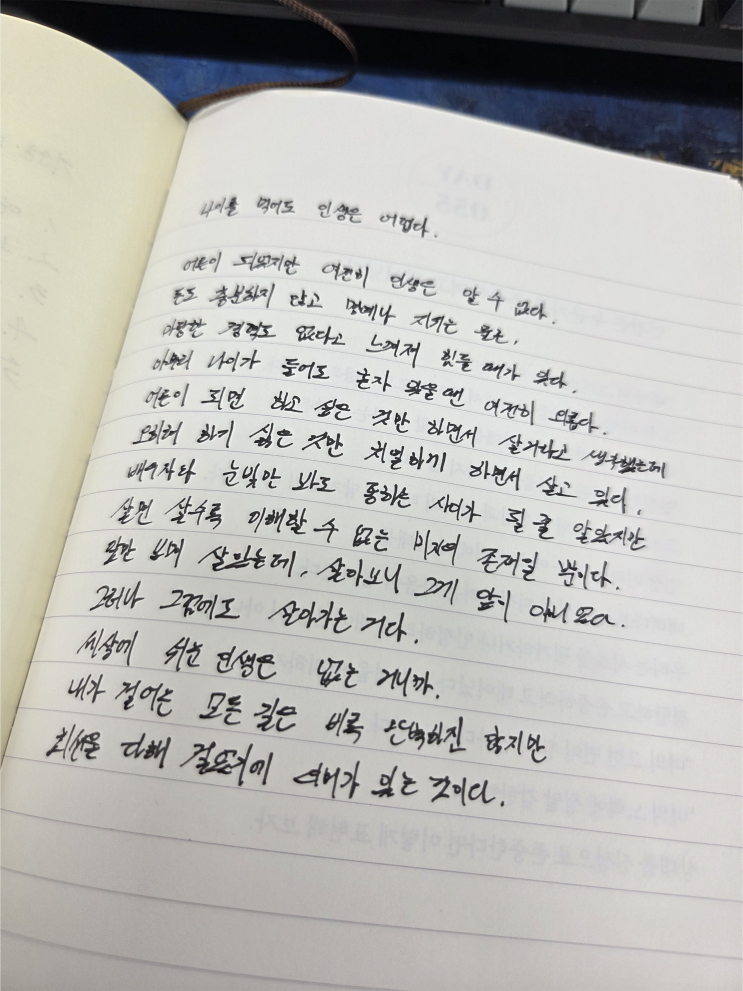 나이를 먹어도 인생은 어렵다.
어른이 되었지만 여전히 인생은 알 수 없다.
돈도 충분하지 않고 언제나 지키는 물론,
마땅한 경력도 없다고 느껴져 힘들 때가 있다.
아무리 나이가 들어도 혼자 있을 땐 여전히 외롭다.
어른이 되면 하고 싶은 것만 하면서 살거라고 생각했는데
오히려 하기 싫은 것만 처절하게 하면서 살고 있다.
배우자란 눈빛만 봐도 통하는 사이가 될 줄 알았지만
살면 살수록 이해할 수 없는 미지의 존재일 뿐이다.
앞만 보며 살았는데, 살아보니 그게 앞이 아니었다.
그러나 그럼에도 살아가는 거다.
세상에 쉬운 인생은 없는 거니까.
내가 걸어온 모든 길은 비록 완벽하진 않지만
최선을 다해 걸었기에 의미가 있는 것이다.
DAY
055